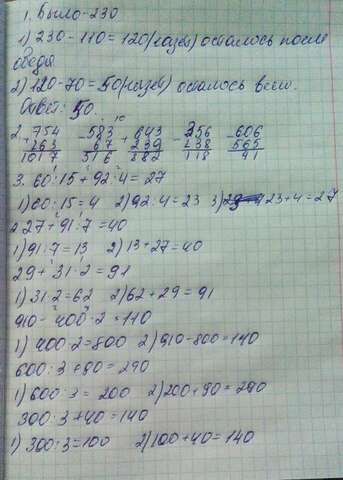 1. Было - 230
1) 230 - 110 = 120 (газет) осталось после
обеда
2) 120 - 70 = 50 (газет) осталось всего.
Ответ: 50.
2. + 754 - 583 + 643 - 356 - 606
263 67 239 238 565
1017 516 882 118 41
3. 60 : 15 + 92 : 4 = 27
1) 60 : 15 = 4 2) 92 : 4 = 23 3) 23 + 4 = 27
27 + 91 : 7 = 40
1) 91 : 7 = 13 2) 13 + 27 = 40
29 + 31 · 2 = 91
1) 31 · 2 = 62 2) 62 + 29 = 91
910 - 400 · 2 = 110
1) 400 · 2 = 800 2) 910 - 800 = 140
600 : 3 + 90 = 290
1) 600 : 3 = 200 2) 200 + 90 = 290
300 : 3 + 40 = 140
1) 300 : 3 = 100 2) 100 + 40 = 140